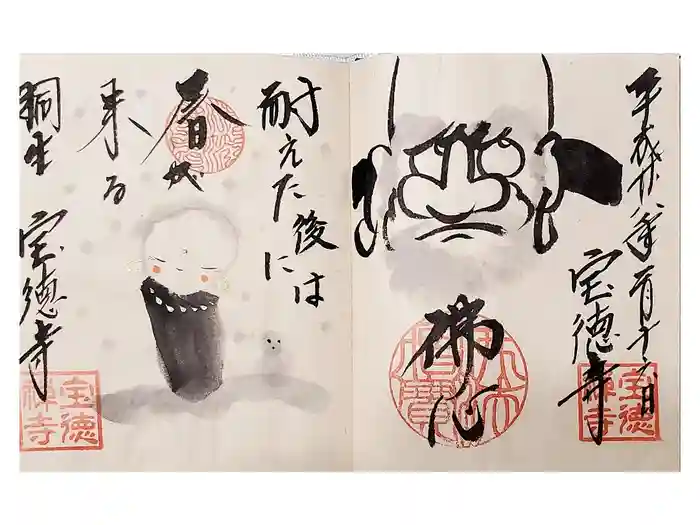 平成廿八年一月十六日
宝徳寺
佛心
佛法僧寶
宝徳禅寺
耐えた後には
春が
来る
桐生 宝徳寺
宝徳禅寺